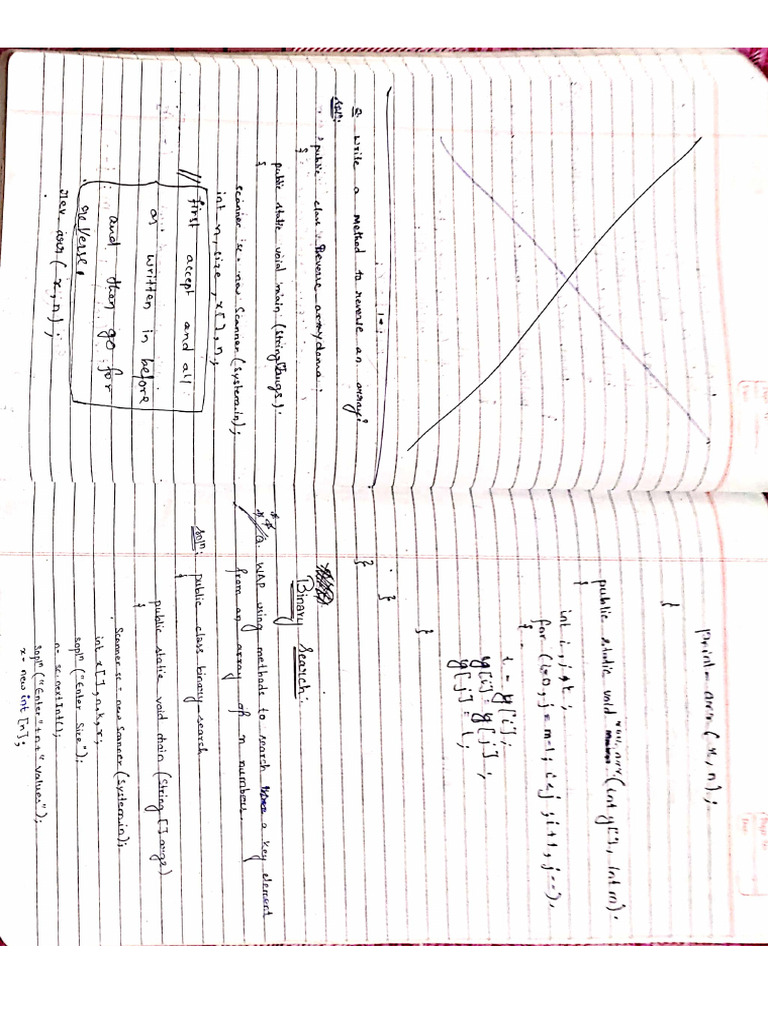 Q. Write a method to reverse an array?
Solⁿ:
public class Reverse_arraydemo
{
public static void main (String[] args).
{
Scanner sc = new Scanner (System.in);
int n, size, x[], n;
// first accept and all
as written in before
and then go for
reverse.
rev_arr (x, n);
print_arr (x, n);
}
public static void rev_arr (int y[], int m).
{
int i, j, t;
for (i=0, j=m-1; i<j; i++, j--),
{
t = y[i];
y[i] = y[j];
y[j] = t;
}
}
}
Binary Search:
Q. WAP using methods to search a key element
from an array of n numbers.
Solⁿ: public class binary_search
{
public static void main (String [] args)
{
Scanner sc = new Scanner (System.in);
int x[], n, k, r;
sopln ("Enter Size");
n= sc.nextInt();
sopln ("Enter "+n+" values");
x= new int [n];